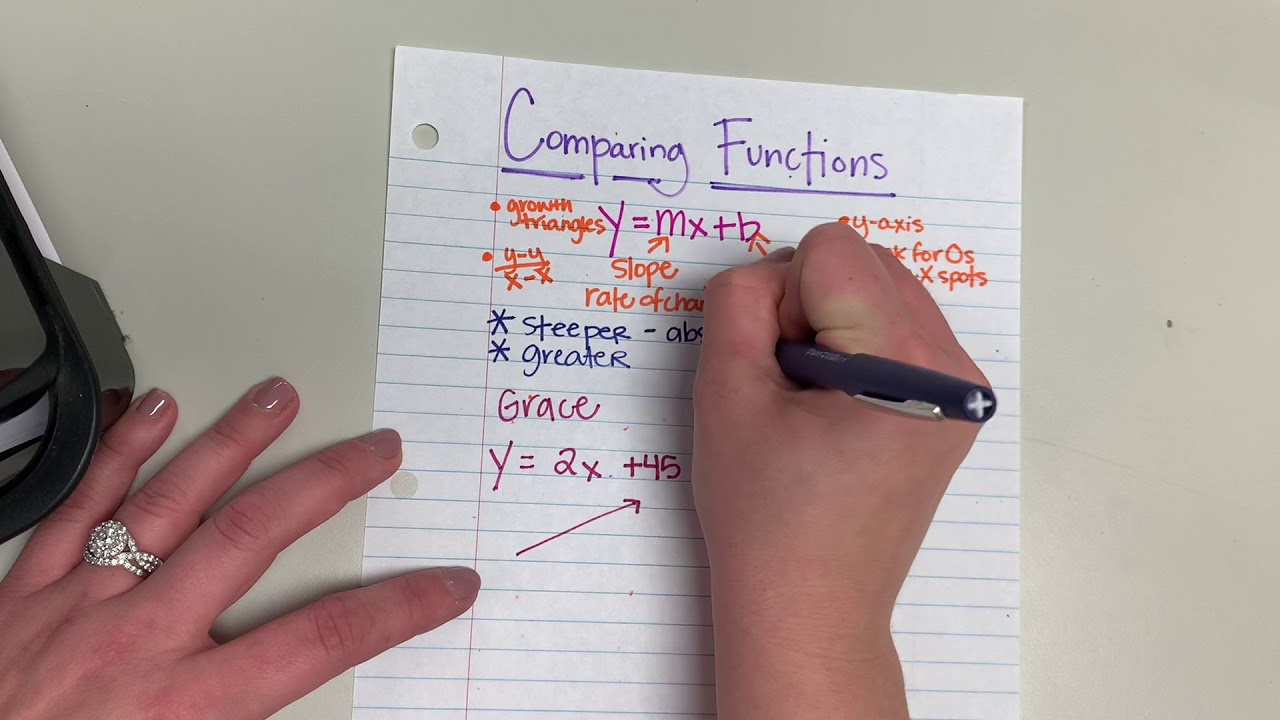 Comparing Functions
• growth triangles
y = mx + b
• y-axis
• y-y / x-x
slope
for 0s
rate of
x spots
* steeper -
* greater
Grace
y = 2x +45